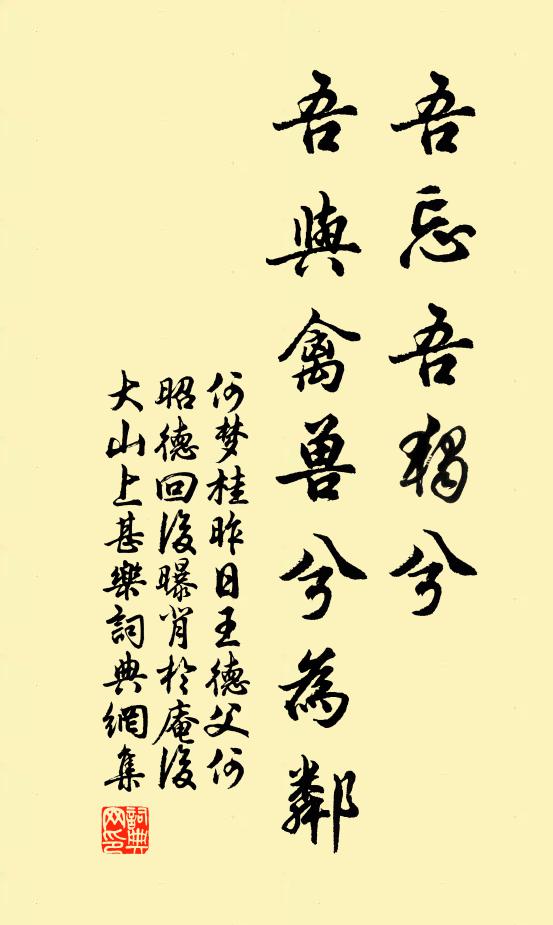 吾忘吾獨兮
吾與禽獸兮為鄰
何梦桂昨日王德父何
昭德回後曝背於庵後
大山上甚樂詞典網集
詞典
网印